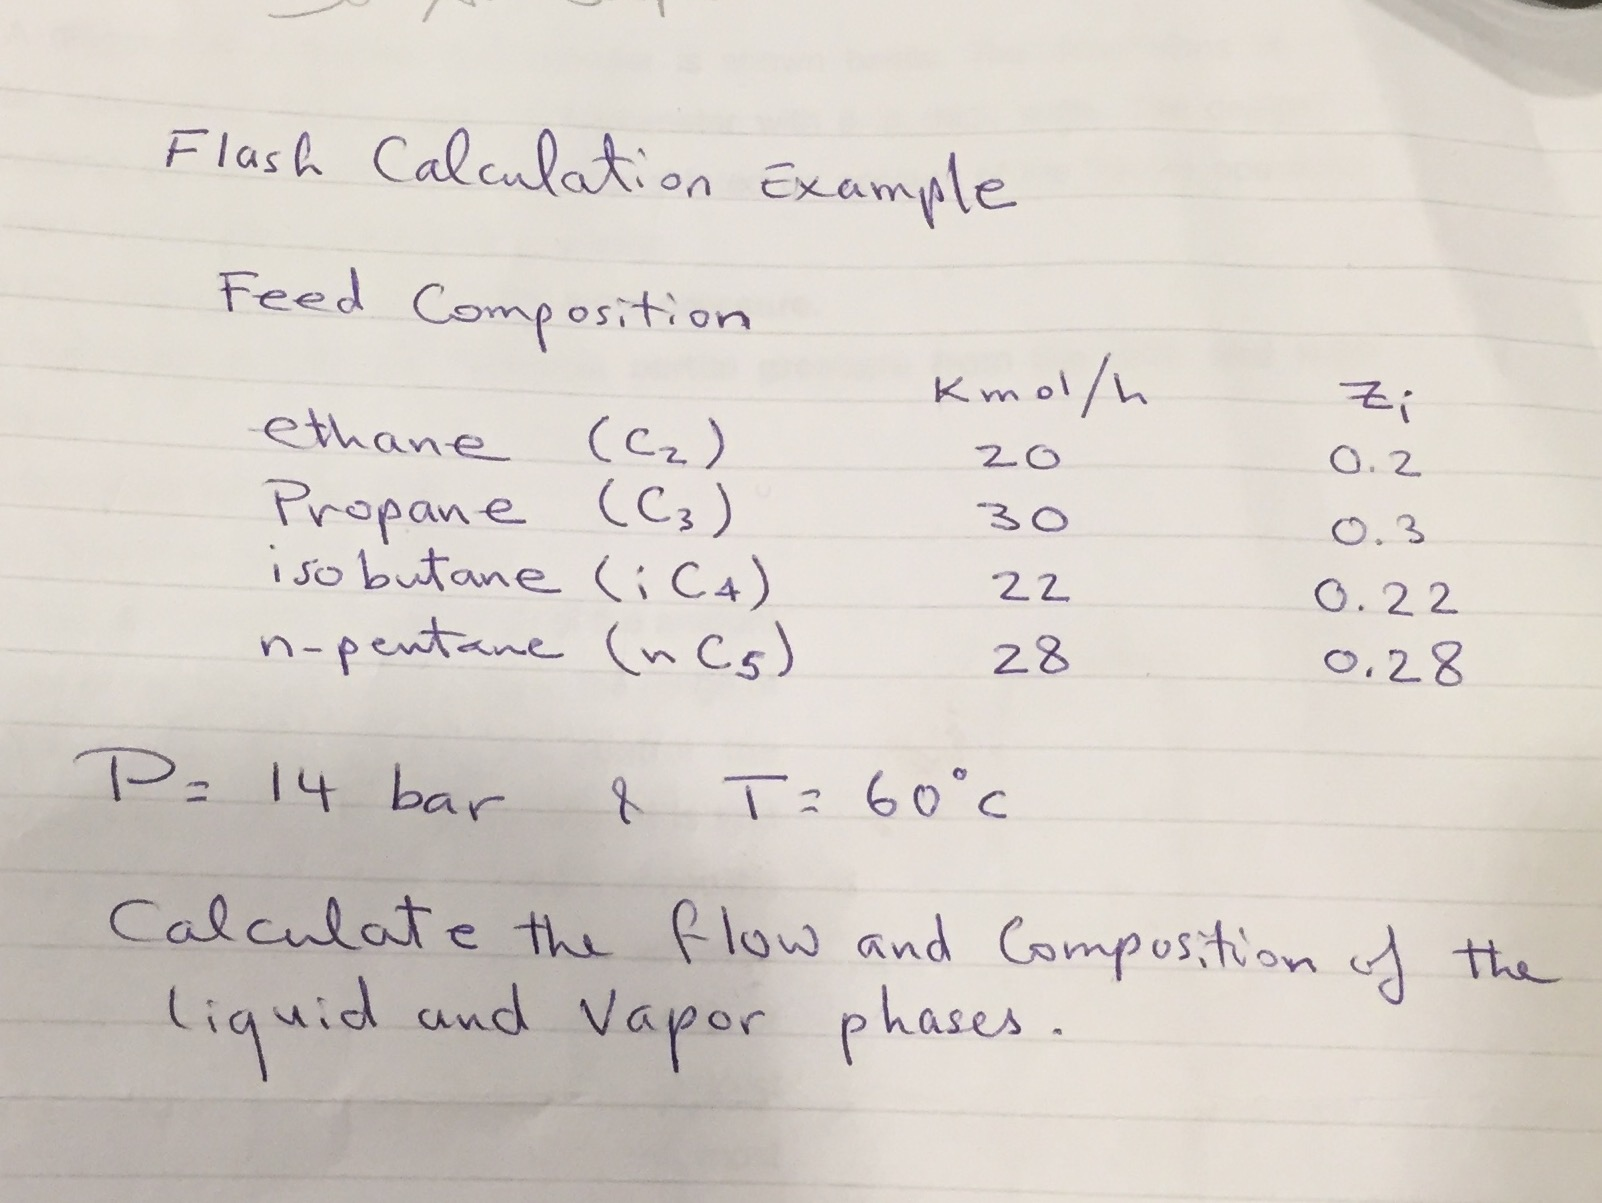 Flash Calculation Example
Feed Composition
Kmol/h zi
ethane (C2) 20 0.2
Propane (C3) 30 0.3
isobutane (iC4) 22 0.22
n-pentane (nC5) 28 0.28
P= 14 bar & T= 60°c
Calculate the flow and Composition of the
liquid and Vapor phases.